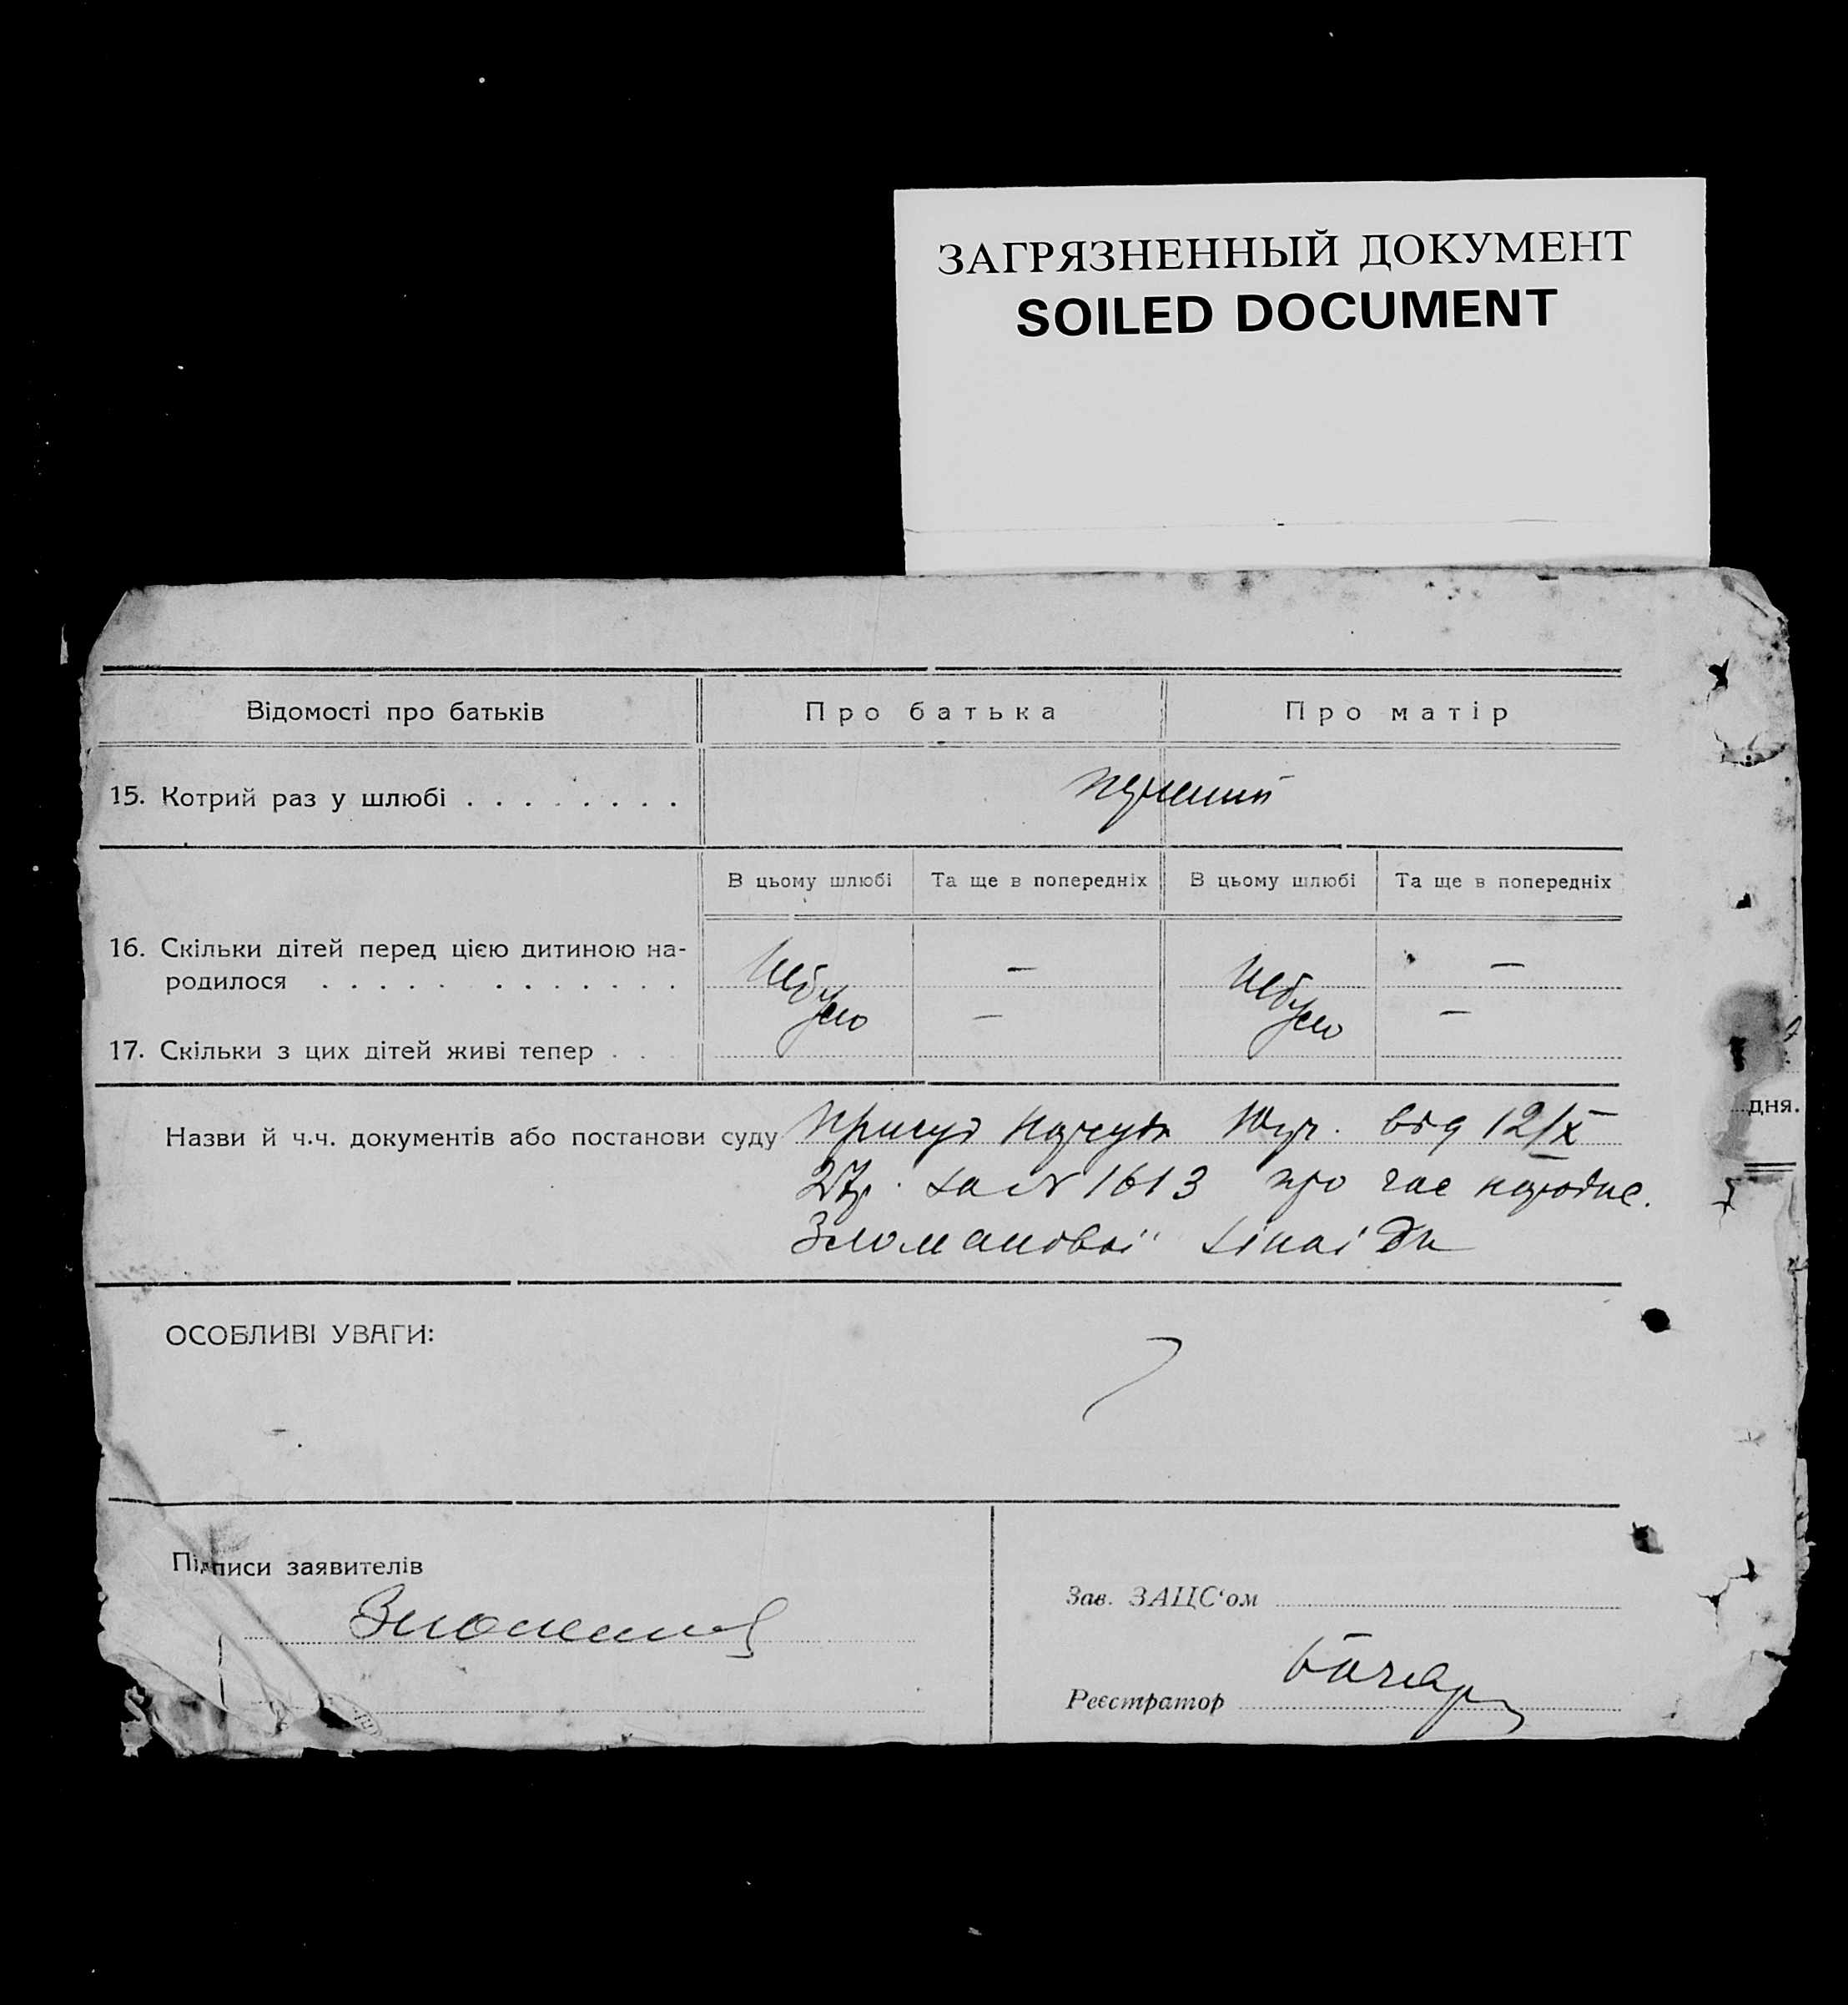 ЗАГРЯЗНЕННЫЙ ДОКУМЕНТ
SOILED DOCUMENT
Відомості про батьків Про батька Про матір
15. Котрий раз у шлюбі . . . . . . . .
В цьому шлюбі Та ще в попередніх В цьому шлюбі Та ще в попередніх
16. Скільки дітей перед цією дитиною на-
родилося . . . . . . . . . . . . — —
Небуло Небуло
17. Скільки з цих дітей живі тепер . . — —
дня.
Назви й ч.ч. документів або постанови суду Присуд Нарсуда від 12/IX
27р. за № 1613 про час народже.
Зломанової Зінаїди
ОСОБЛИВІ УВАГИ:
Підписи заявителів
Зав. ЗАЦС‘ом
Реєстратор